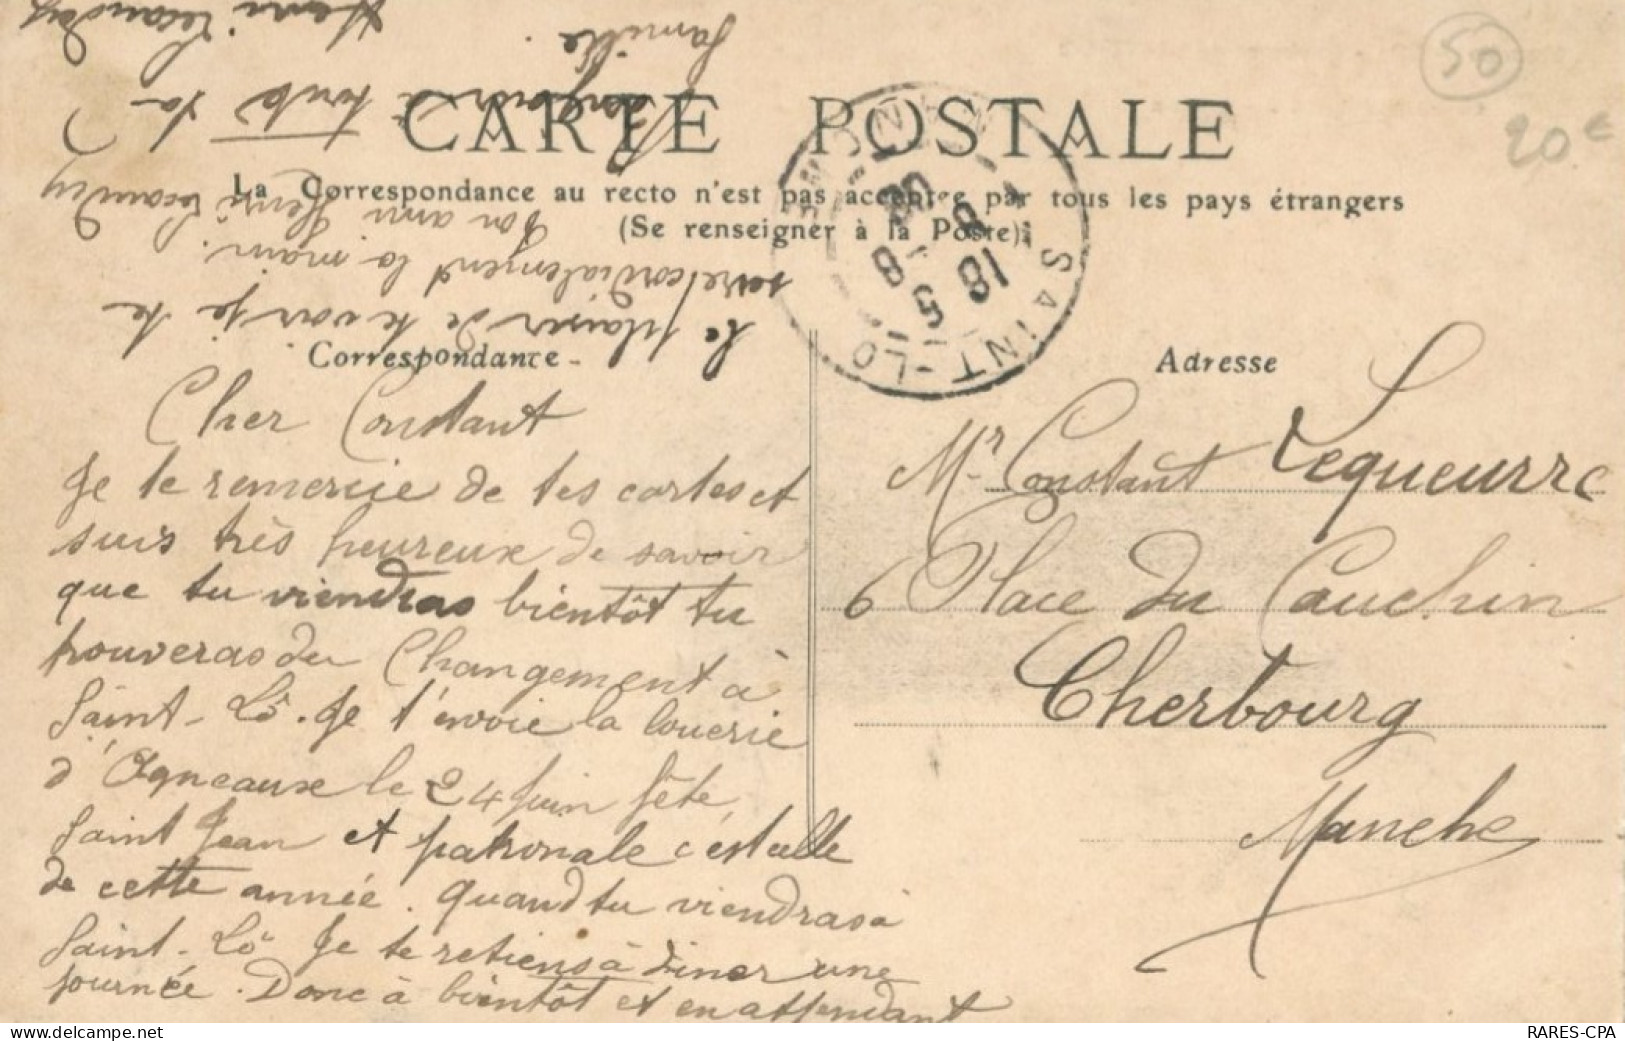 50
20€
CARTE POSTALE
La Correspondance au recto n'est pas acceptée par tous les pays étrangers
(Se renseigner à la Poste)
SAINT-LO
18 5
8
Correspondance
Cher Constant
Je te remercie de tes cartes et
suis très heureux de savoir
que tu viendras bientôt tu
trouveras du Changement à
Saint-Lô. Je t'envoie la louerie
d'Agneaux le 24 juin fête
Saint Jean et patronale c'est celle
de cette année. Quand tu viendras à
Saint-Lô Je te retiens à diner une
journée. Donc à bientôt et en attendant
le plaisir de te voir je te
serre cordialement la main.
Ton ami Henri Lecaudey
Bonjour à toute ta
famille.
Henri Lecaudey
Adresse
Mr Constant Lequeurre
6 Place du Cauchin
Cherbourg
Manche
RARES-CPA
https://www.delcampe.net